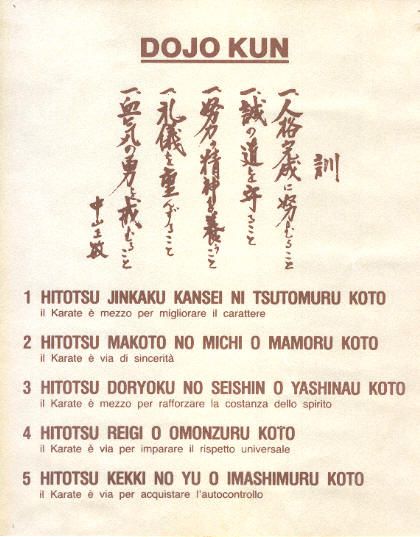 DOJO KUN
訓
一、人格完成に努むること
一、誠の道を守ること
一、努力の精神を養うこと
一、礼儀を重んずること
一、血気の勇を戒むること
中山正敏
1 HITOTSU JINKAKU KANSEI NI TSUTOMURU KOTO
il Karate è mezzo per migliorare il carattere
2 HITOTSU MAKOTO NO MICHI O MAMORU KOTO
il Karate è via di sincerità
3 HITOTSU DORYOKU NO SEISHIN O YASHINAU KOTO
il Karate è mezzo per rafforzare la costanza dello spirito
4 HITOTSU REIGI O OMONZURU KOTO
il Karate è via per imparare il rispetto universale
5 HITOTSU KEKKI NO YU O IMASHIMURU KOTO
il Karate è via per acquistare l'autocontrollo